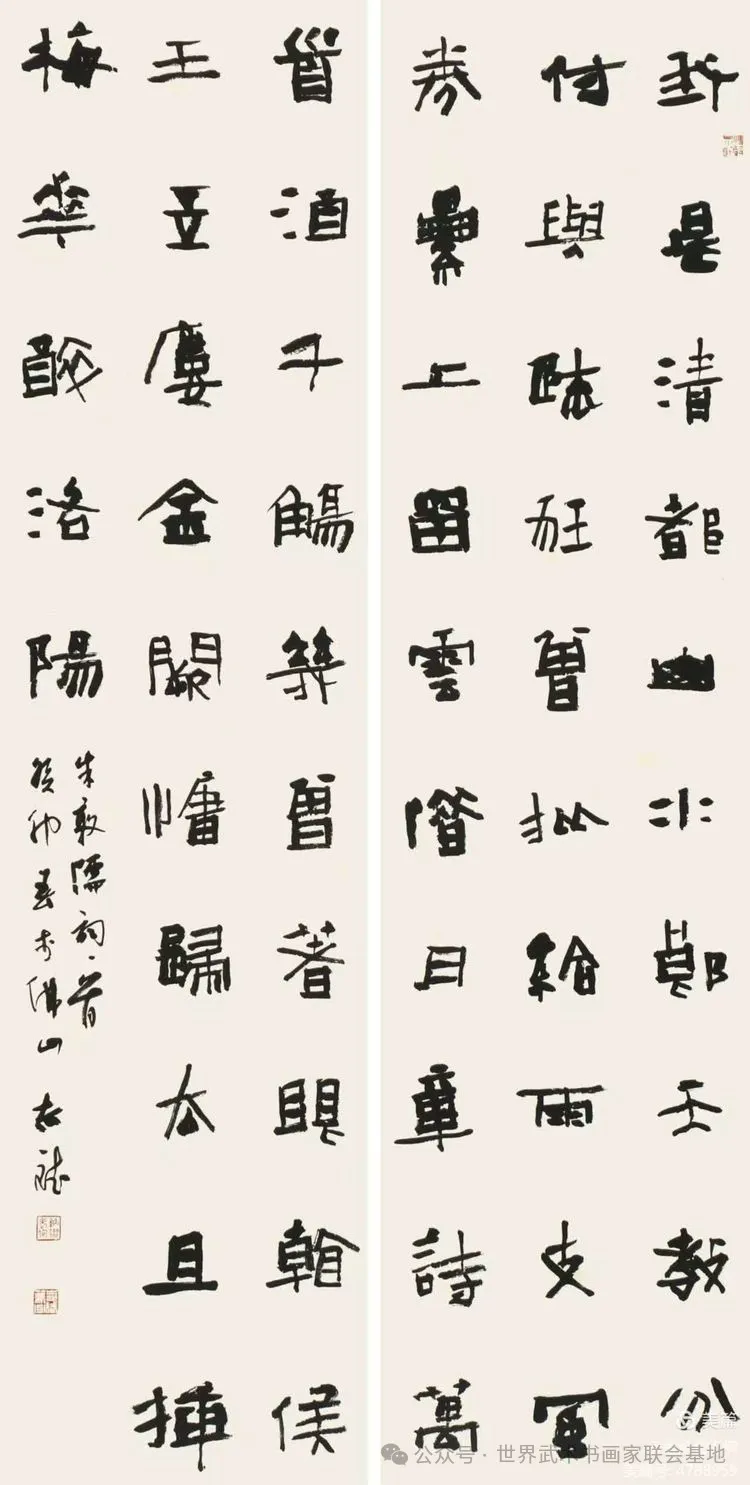 我是清都山水郎天教分
付與疎狂曾批給雨支風
券纍上留雲借月章詩萬
首酒千觴幾曾著眼看侯
王玉樓金闕慵歸去且插
梅華醉洛陽
朱敦儒詞一首
癸卯春於佛山
美篇
公众号 · 世界武术书画家联会基地